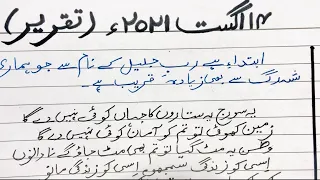 ۱۴ اگست ۲۰۲۱ء (تقریر)
ابتداء ہے رب جلیل کے نام سے جو ہماری
شہ رگ سے بھی زیادہ قریب ہے۔
یہ سورج یہ ستاروں کا جہاں کوئی نہیں دے گا
زمین کھوئی تو تم کو آسماں کوئی نہیں دے گا
وطن مٹ گیا تو تم بھی مٹ جاؤ گے نادانوں
اسی کو زندگی سمجھو اسی کو زندگی مانو